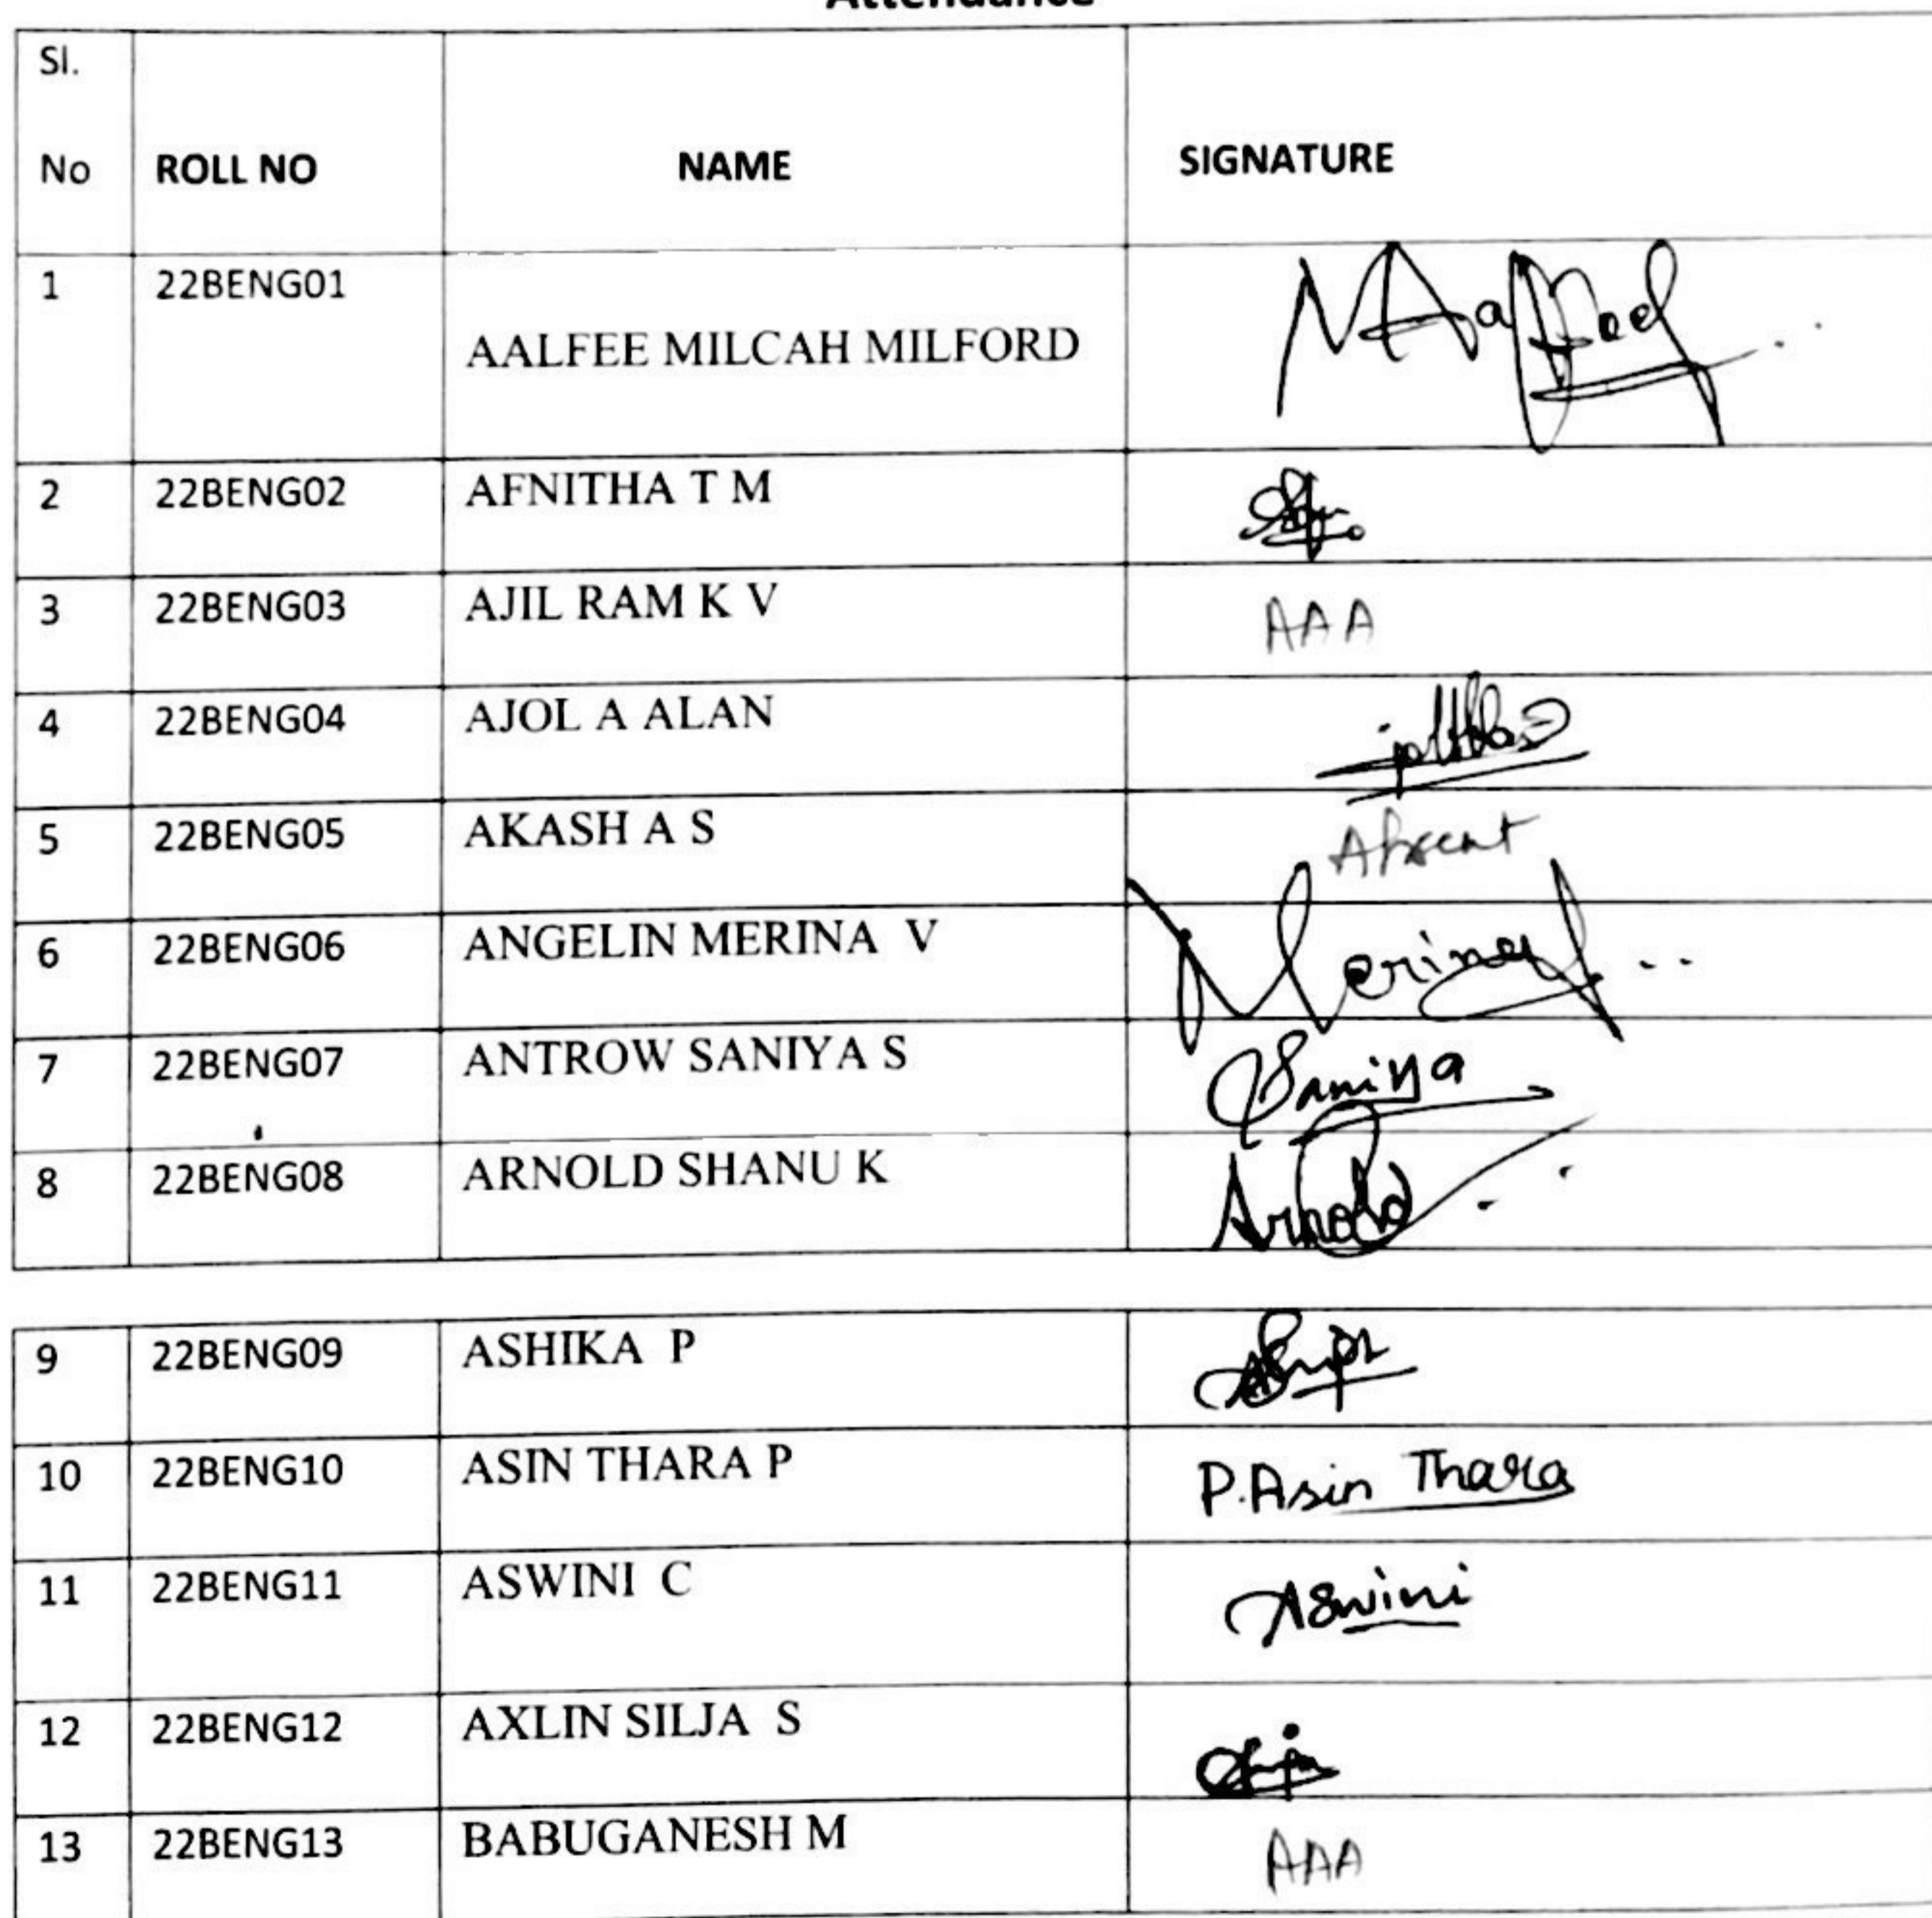 Attendance
Sl.
No ROLL NO NAME SIGNATURE
1 22BENG01
AALFEE MILCAH MILFORD
2 22BENG02 AFNITHA T M
3 22BENG03 AJIL RAM K V AAA
4 22BENG04 AJOL A ALAN
5 22BENG05 AKASH A S Absent
6 22BENG06 ANGELIN MERINA V Merina
7 22BENG07 ANTROW SANIYA S Saniya
8 22BENG08 ARNOLD SHANU K Arnold
9 22BENG09 ASHIKA P
10 22BENG10 ASIN THARA P P.Asin Thara
11 22BENG11 ASWINI C Aswini
12 22BENG12 AXLIN SILJA S
13 22BENG13 BABUGANESH M AAA